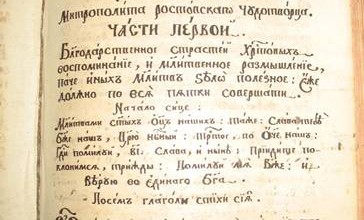 Митрополита ростовскаго Чудотворца.
ЧАСТИ ПЕРВОЙ
Благодарственное страстей Хрⷭ҇товыхъ
воспоминание, и млⷭ҇твенное размышление,
паче иныхъ млⷭ҇твъ ѕѣлѡ полезное: Еже
должно по всѧ пѧтки совершати.
Начало сице:
Млⷭ҇твами ст҃ыхъ Оц҃ъ нашихъ: Таже: Слава тебѣ
Бж҃е нашъ, Царю нб҃ный: Трⷭ҇тое, по Оч҃е нашъ:
Гдⷭ҇и помилуй, в҃і: Слава, и нынѣ: Приидите по
клонимсѧ, трижды: Помилуй мѧ Бж҃е: и
Вѣрую во единаго Бг҃а.
Посемъ глаголи стихи сїѧ.